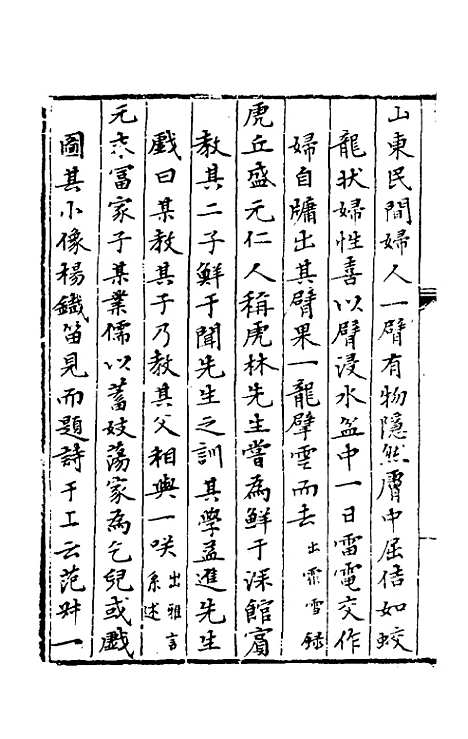 山東民間婦人一臂有物隱然膚中屈佶如蛟
龍狀婦性喜以臂浸水盆中一日雷電交作
婦自牗出其臂果一龍擘雲而去出霏雪録
虎丘盛元仁人稱虎林先生嘗為鮮于深館賓
教其二子鮮于聞先生之訓其學孟進先生
戲曰某教其子乃教其父相與一咲出雅言系述
元末冨家子某業儒以蓄妓蕩家為乞兒或戲
圖其小像楊鐵笛見而題詩于工云范丹一